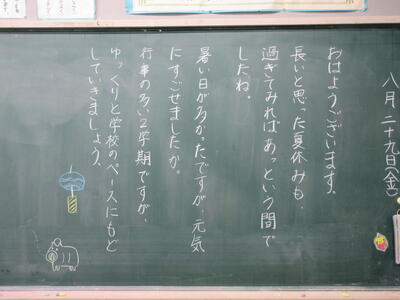 八月二十九日(金)
おはようございます。
長いと思った夏休みも、
過ぎてみればあっという間で
したね。
暑い日が多かったですが、元気
にすごせましたか。
行事の多い2学期ですが、
ゆっくりと学校のペースにもど
していきましょう。